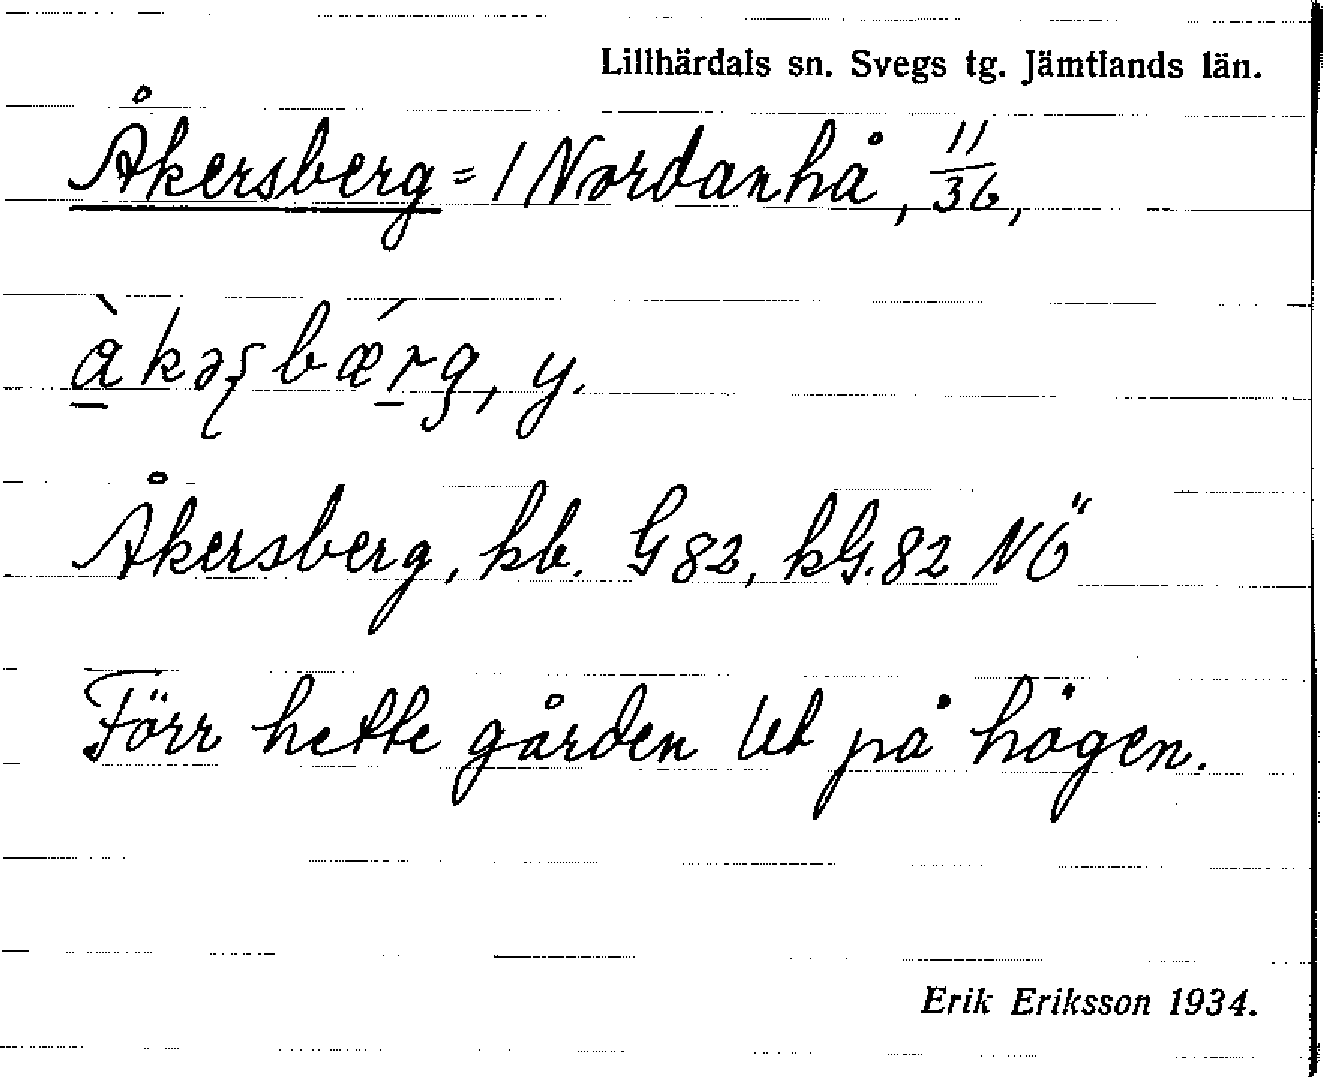 Lillhärdals sn. Svegs tg. Jämtlands län.
Åkersberg = 1 Nordanhå, 11/36,
à̱kəʂbǽṟg, y.
Åkersberg, kb. G 82, kG. 82 NÖ
Förr hette gården Ut på hågen.
Erik Eriksson 1934.